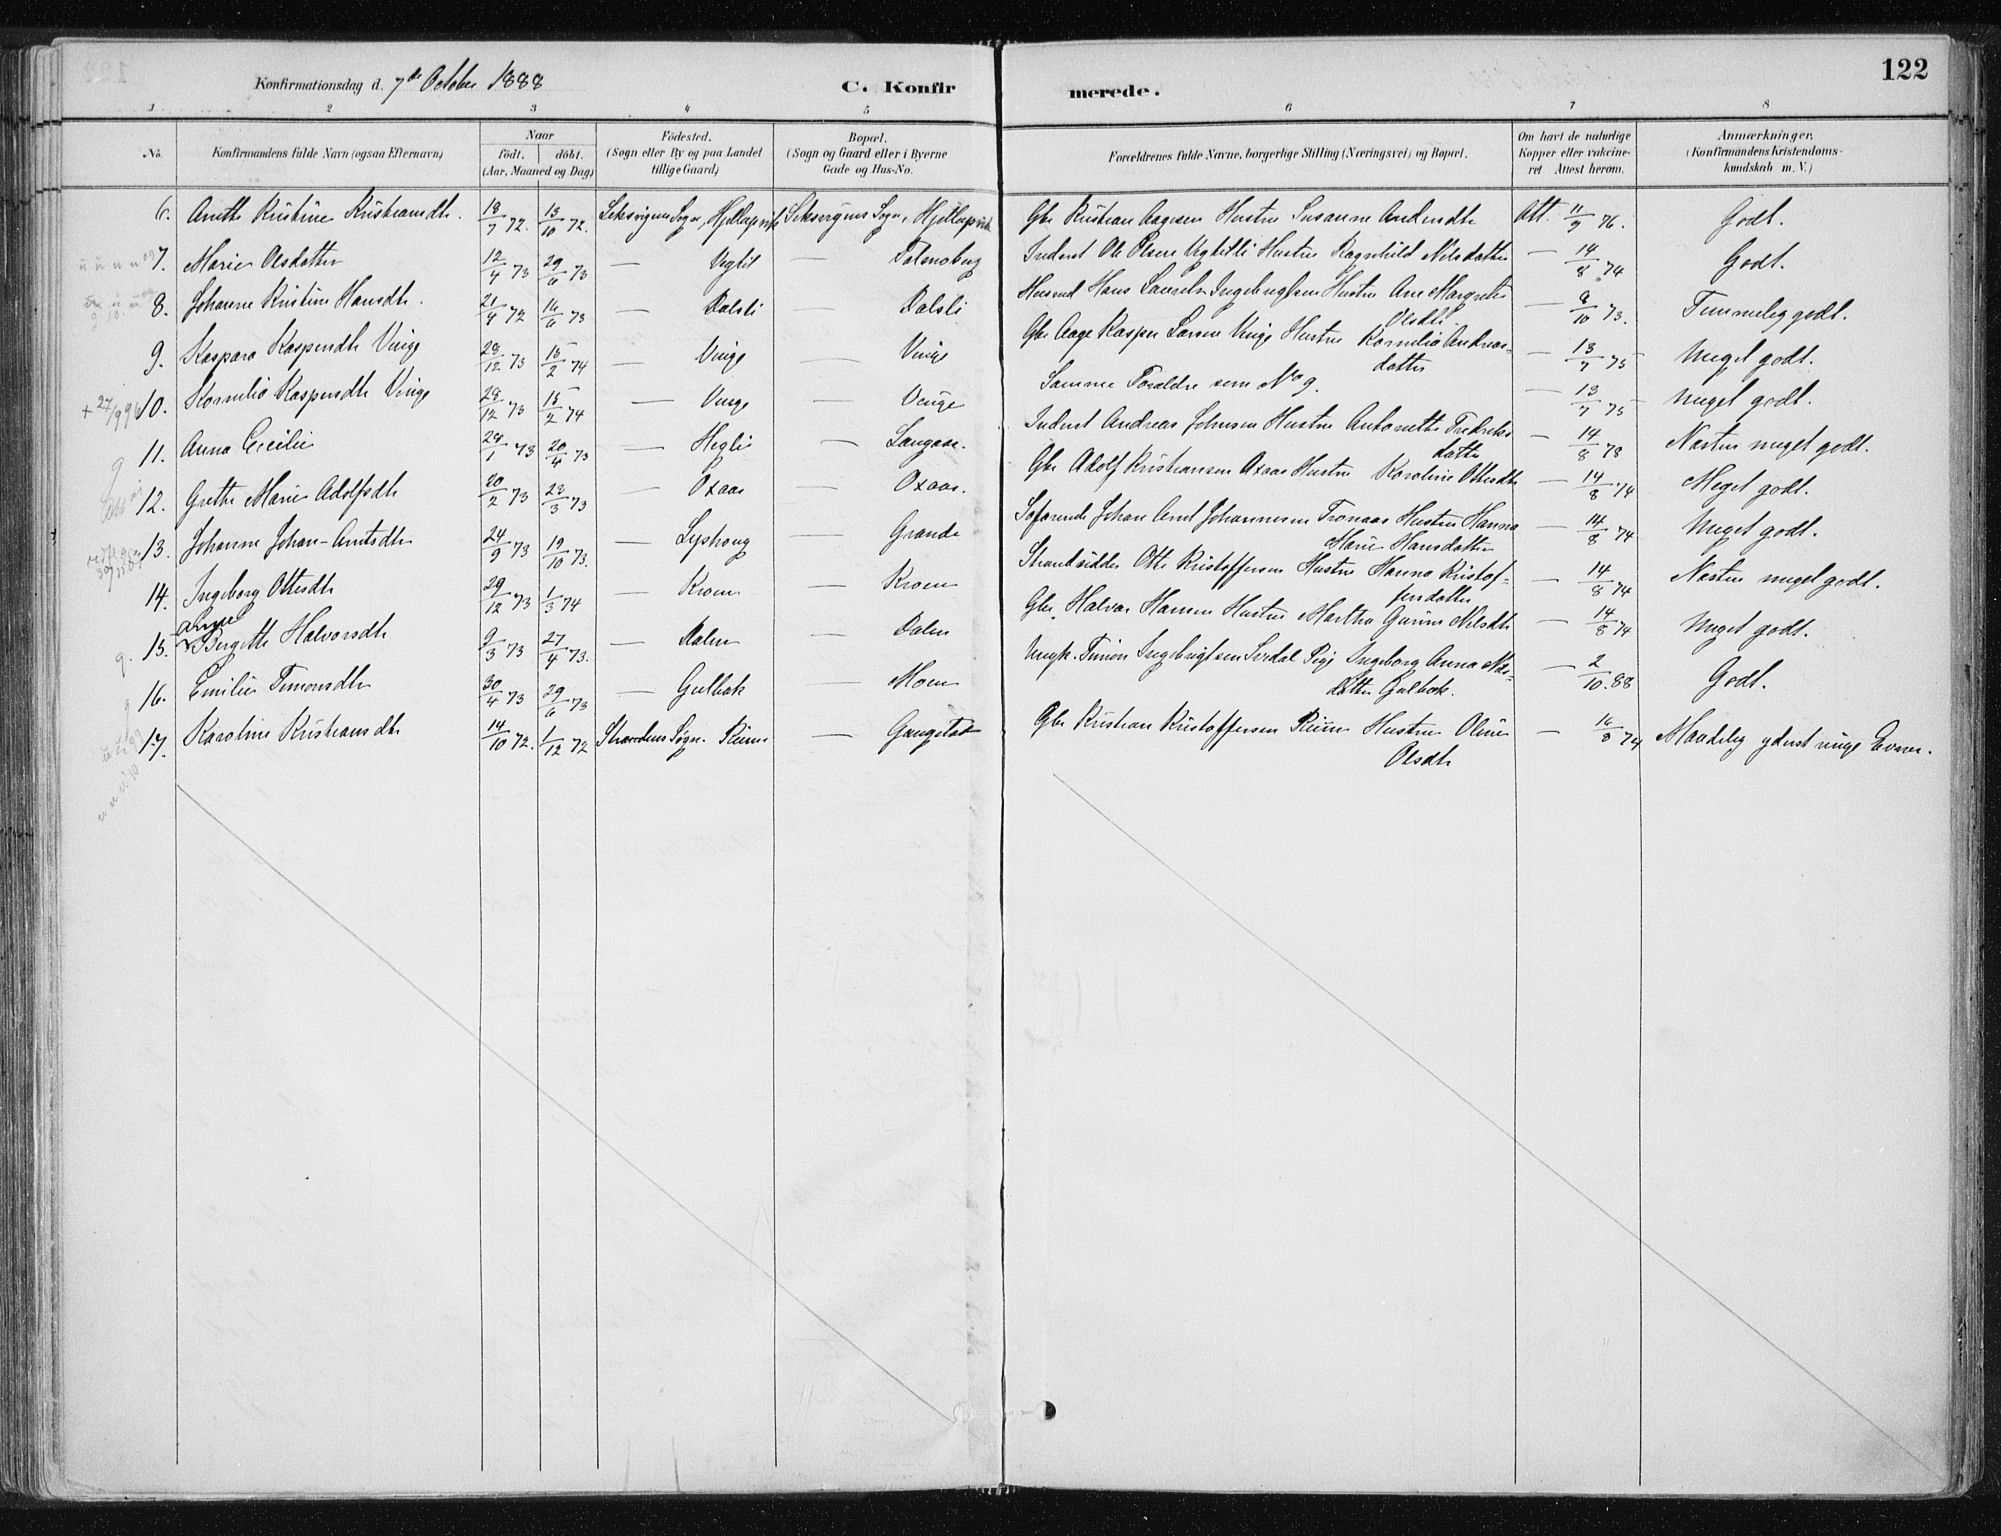 122
Konfirmationsdag d. 7de October 1888
C. Konfirmerede.
1 2 3 4 5 6 7 8
No. Konfirmandens fulde Navn (ogsaa Efternavn) Naar födt. döbt. (Aar, Maaned og Dag) Födested. (Sogn eller By og paa Landet tillige Gaard) Bopæl. (Sogn og Gaard eller i Byerne Gade og Hus-No. Forældrenes fulde Navne, borgerlige Stilling (Næringsvei) og Bopæl. Om havt de naturlige Kopper eller vakcineret. Attest herom. Anmærkninger, (Konfirmandens Kristendomskundskab m. V.)
6. Anette Kristine Kristiansdtr. 18/7 72. 13/10 72. Leksvigens Sogn, Leksvigens Sogn, Gbr Kristian Aagesen Hustru Susanne Andersdtr Att. 11/9 76. Godt.
7. Marie Olsdatter 12/4 73 29/6 73 — — Inderst Ole Olsen Hustru Ragnhild Nilsdatter — 14/8 74 Godt.
8. Johanne Kristine Hansdtr. 21/4 72 14/6 73 — Dalsli — Dalsli Husmd Hans Laurits Ingebrigtsen Hustru Ane Margrete Olsdtr. — 9/10 73. Temmelig godt.
9. Kaspara Kaspersdtr Vinge 28/12 73 15/2 74 — Vinge — Vinge Gbr Aage Kasper Larsen Vinge Hustru Kornelia Andreasdatter — 13/7 75 Meget godt.
+ 27/9 96 10. Kornelia Kaspersdtr Vinge 28/12 73 15/2 74 — Vinge — Vinge Samme Forældre som No 9. — 13/7 75 Meget godt.
11. Anna Cecilie 24/1 73 20/4 73 — Heglis — Langaas. Inderst Andreas Johnsen Hustru Antonette Fredriksdatter — 14/8 78 Næsten meget godt.
12. Grethe Marie Adolfsdtr 20/2 73 23/3 73 — Oxaas — Oxaas. Gbr Adolf Kristiansen Oxaas Hustru Karoline Ottesdtr — 14/8 74 Meget godt.
13. Johanne Johan-Arntsdtr 24/9 73 19/10 73. — — Grande Søfarende Johan Arnt Johannesen Tronaas Hustru Hanna Marie Hansdatter — 14/8 74 Meget godt.
14. Ingeborg Ottesdtr 29/12 73 1/3 74 — Kroen — Kroen Strandsidder Otte Kristoffersen Hustru Hanna Kristoffersdatter — 14/8 74 Næsten meget godt.
15. Bergitte Halvorsdtr 9/3 73 27/4 73. — Dalen — Dalen Gbr. Halvor Hansen Hustru Martha Gurine Nilsdtr — 14/8 74 Meget godt.
16. Emilie Timonsdtr 30/4 73 29/6 73 — Gulbak — Moen Ungk. Timon Ingebrigtsen Pige Ingeborg Anna Nilsdatter Gulbak. — 2/10. 88 Godt.
17. Karoline Kristiansdtr 14/10 72. 1/12 72 Strandens Sogn. Reine — Gaugstad Gbr Kristian Kristoffersen Reine Hustru Oline Olsdtr — 16/8 74 Maadelig yderst ringe Evner.